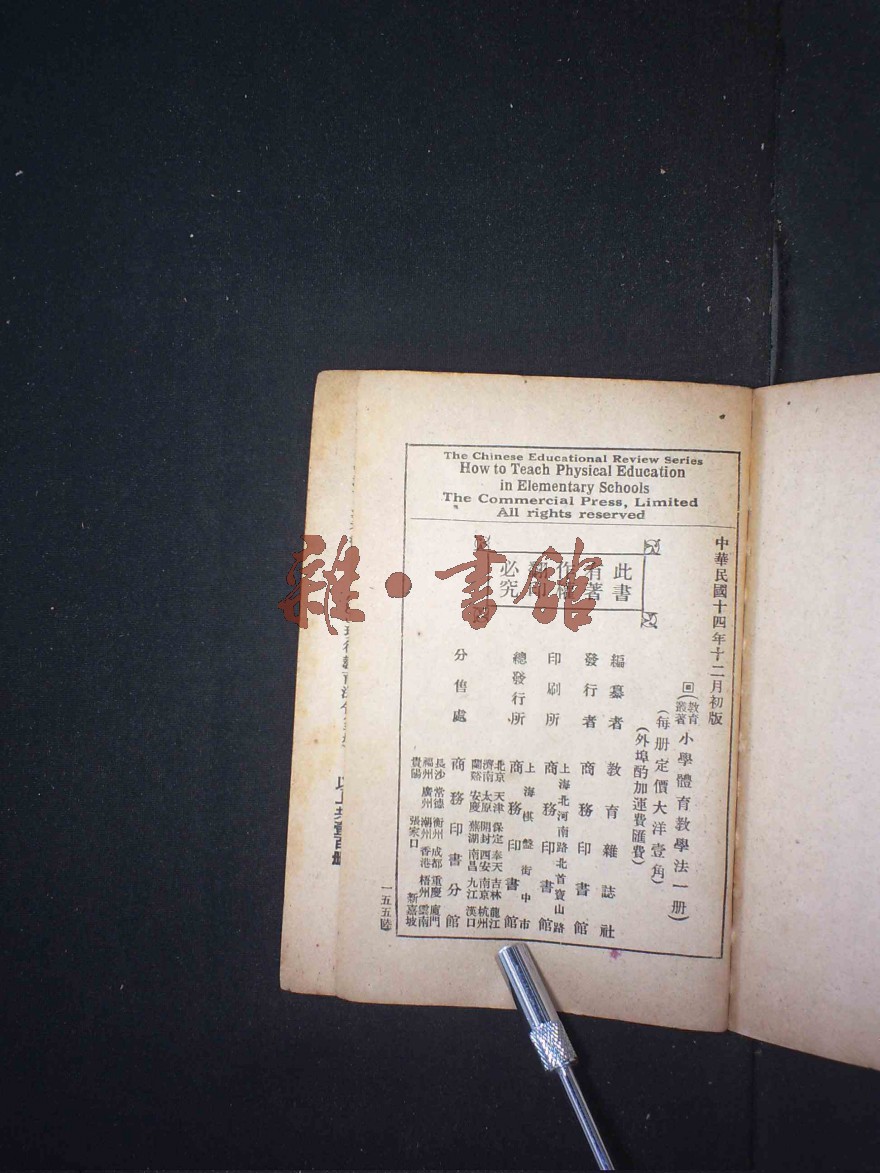 The Chinese Educational Review Series
How to Teach Physical Education
in Elementary Schools
The Commercial Press, Limited
All rights reserved
中華民國十四年十二月初版
(教育叢著)小學體育教學法一册)
(每册定價大洋壹角)
(外埠酌加運費匯費)
此書
有著
作權
翻印
必究
編纂者 教育雜誌社
發行者 商務印書館
印刷所 上海北河南路北首寶山路 商務印書館
總發行所 上海棋盤街中市 商務印書館
分售處 商務印書分館
北京 天津 保定 奉天 吉林 龍江
濟南 太原 開封 西安 南京 杭州
蘭谿 安慶 蕪湖 南昌 九江 漢口
長沙 常德 衡州 成都 重慶 廈門
福州 廣州 潮州 香港 梧州 雲南
貴陽 張家口 新嘉坡
一五五陸
以上共壹百册
雜·書館